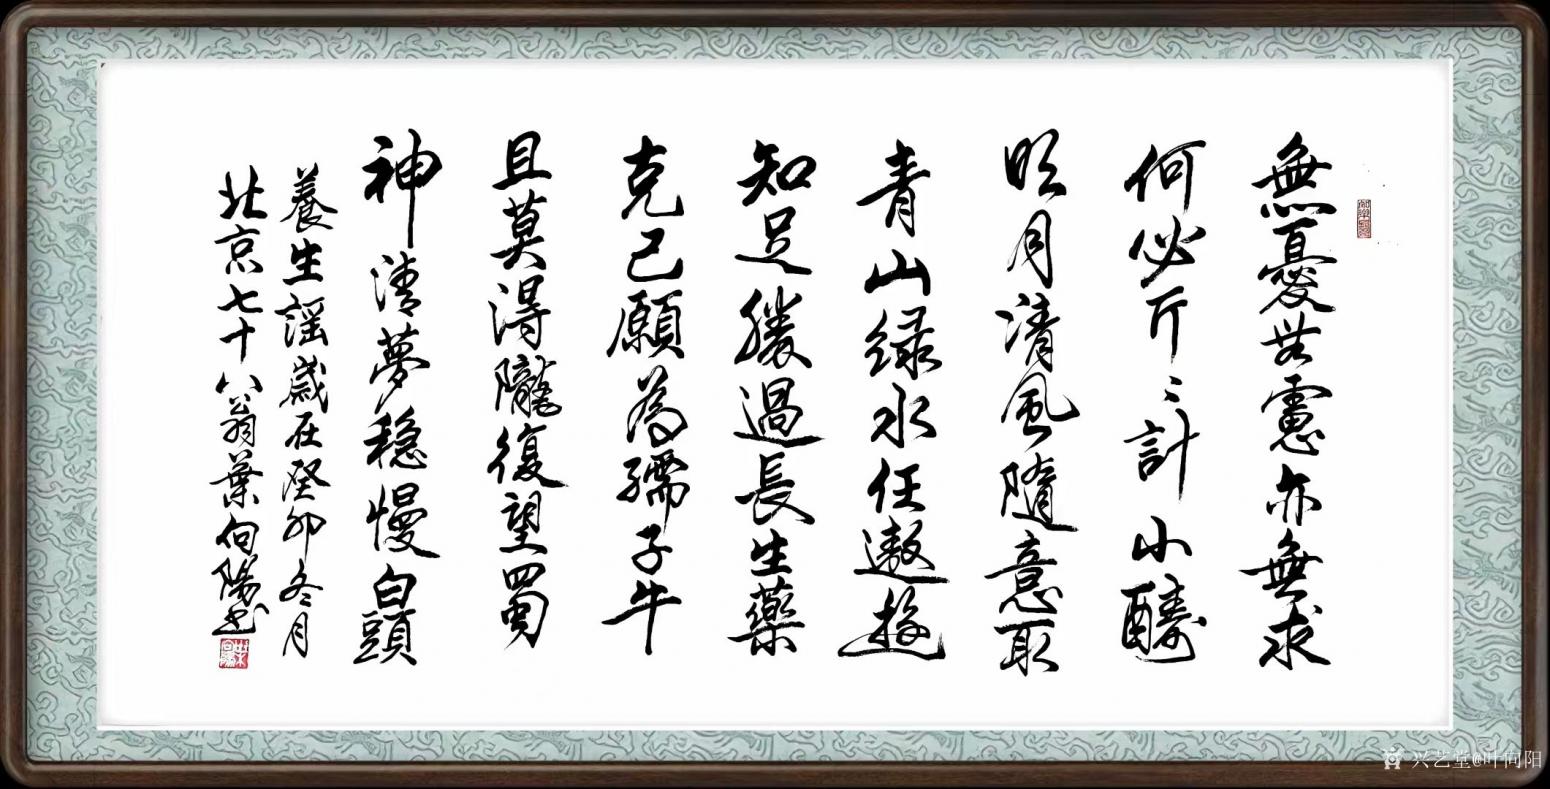 無憂無慮亦無求
何必斤〻計小酬
明月清風隨意取
青山绿水任遨遊
知足勝過長生藥
克己願為孺子牛
且莫得隴復望蜀
神清夢穩慢白頭
養生謡歲在癸卯冬月
北京七十八翁葉向陽书
兴艺堂@叶向阳